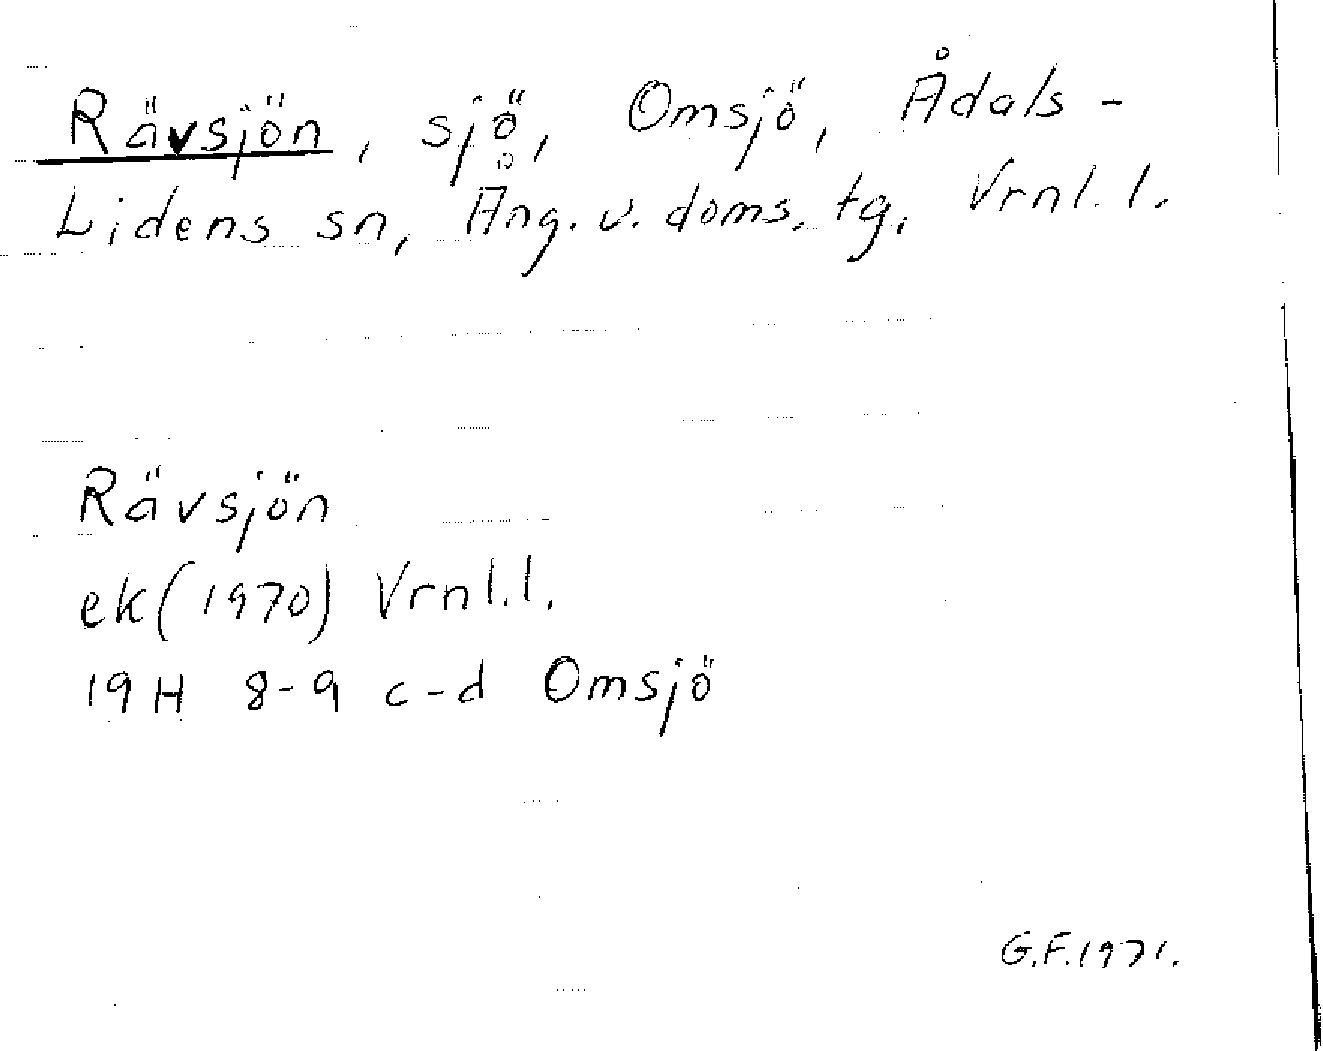 Rävsjön, sjö, Omsjö, Ådals-
Lidens sn, Ång. v. doms. tg, Vrnl. l.
Rävsjön
ek(1970) Vrnl.l.
19 H 8-9 c-d Omsjö
G.F.1971.